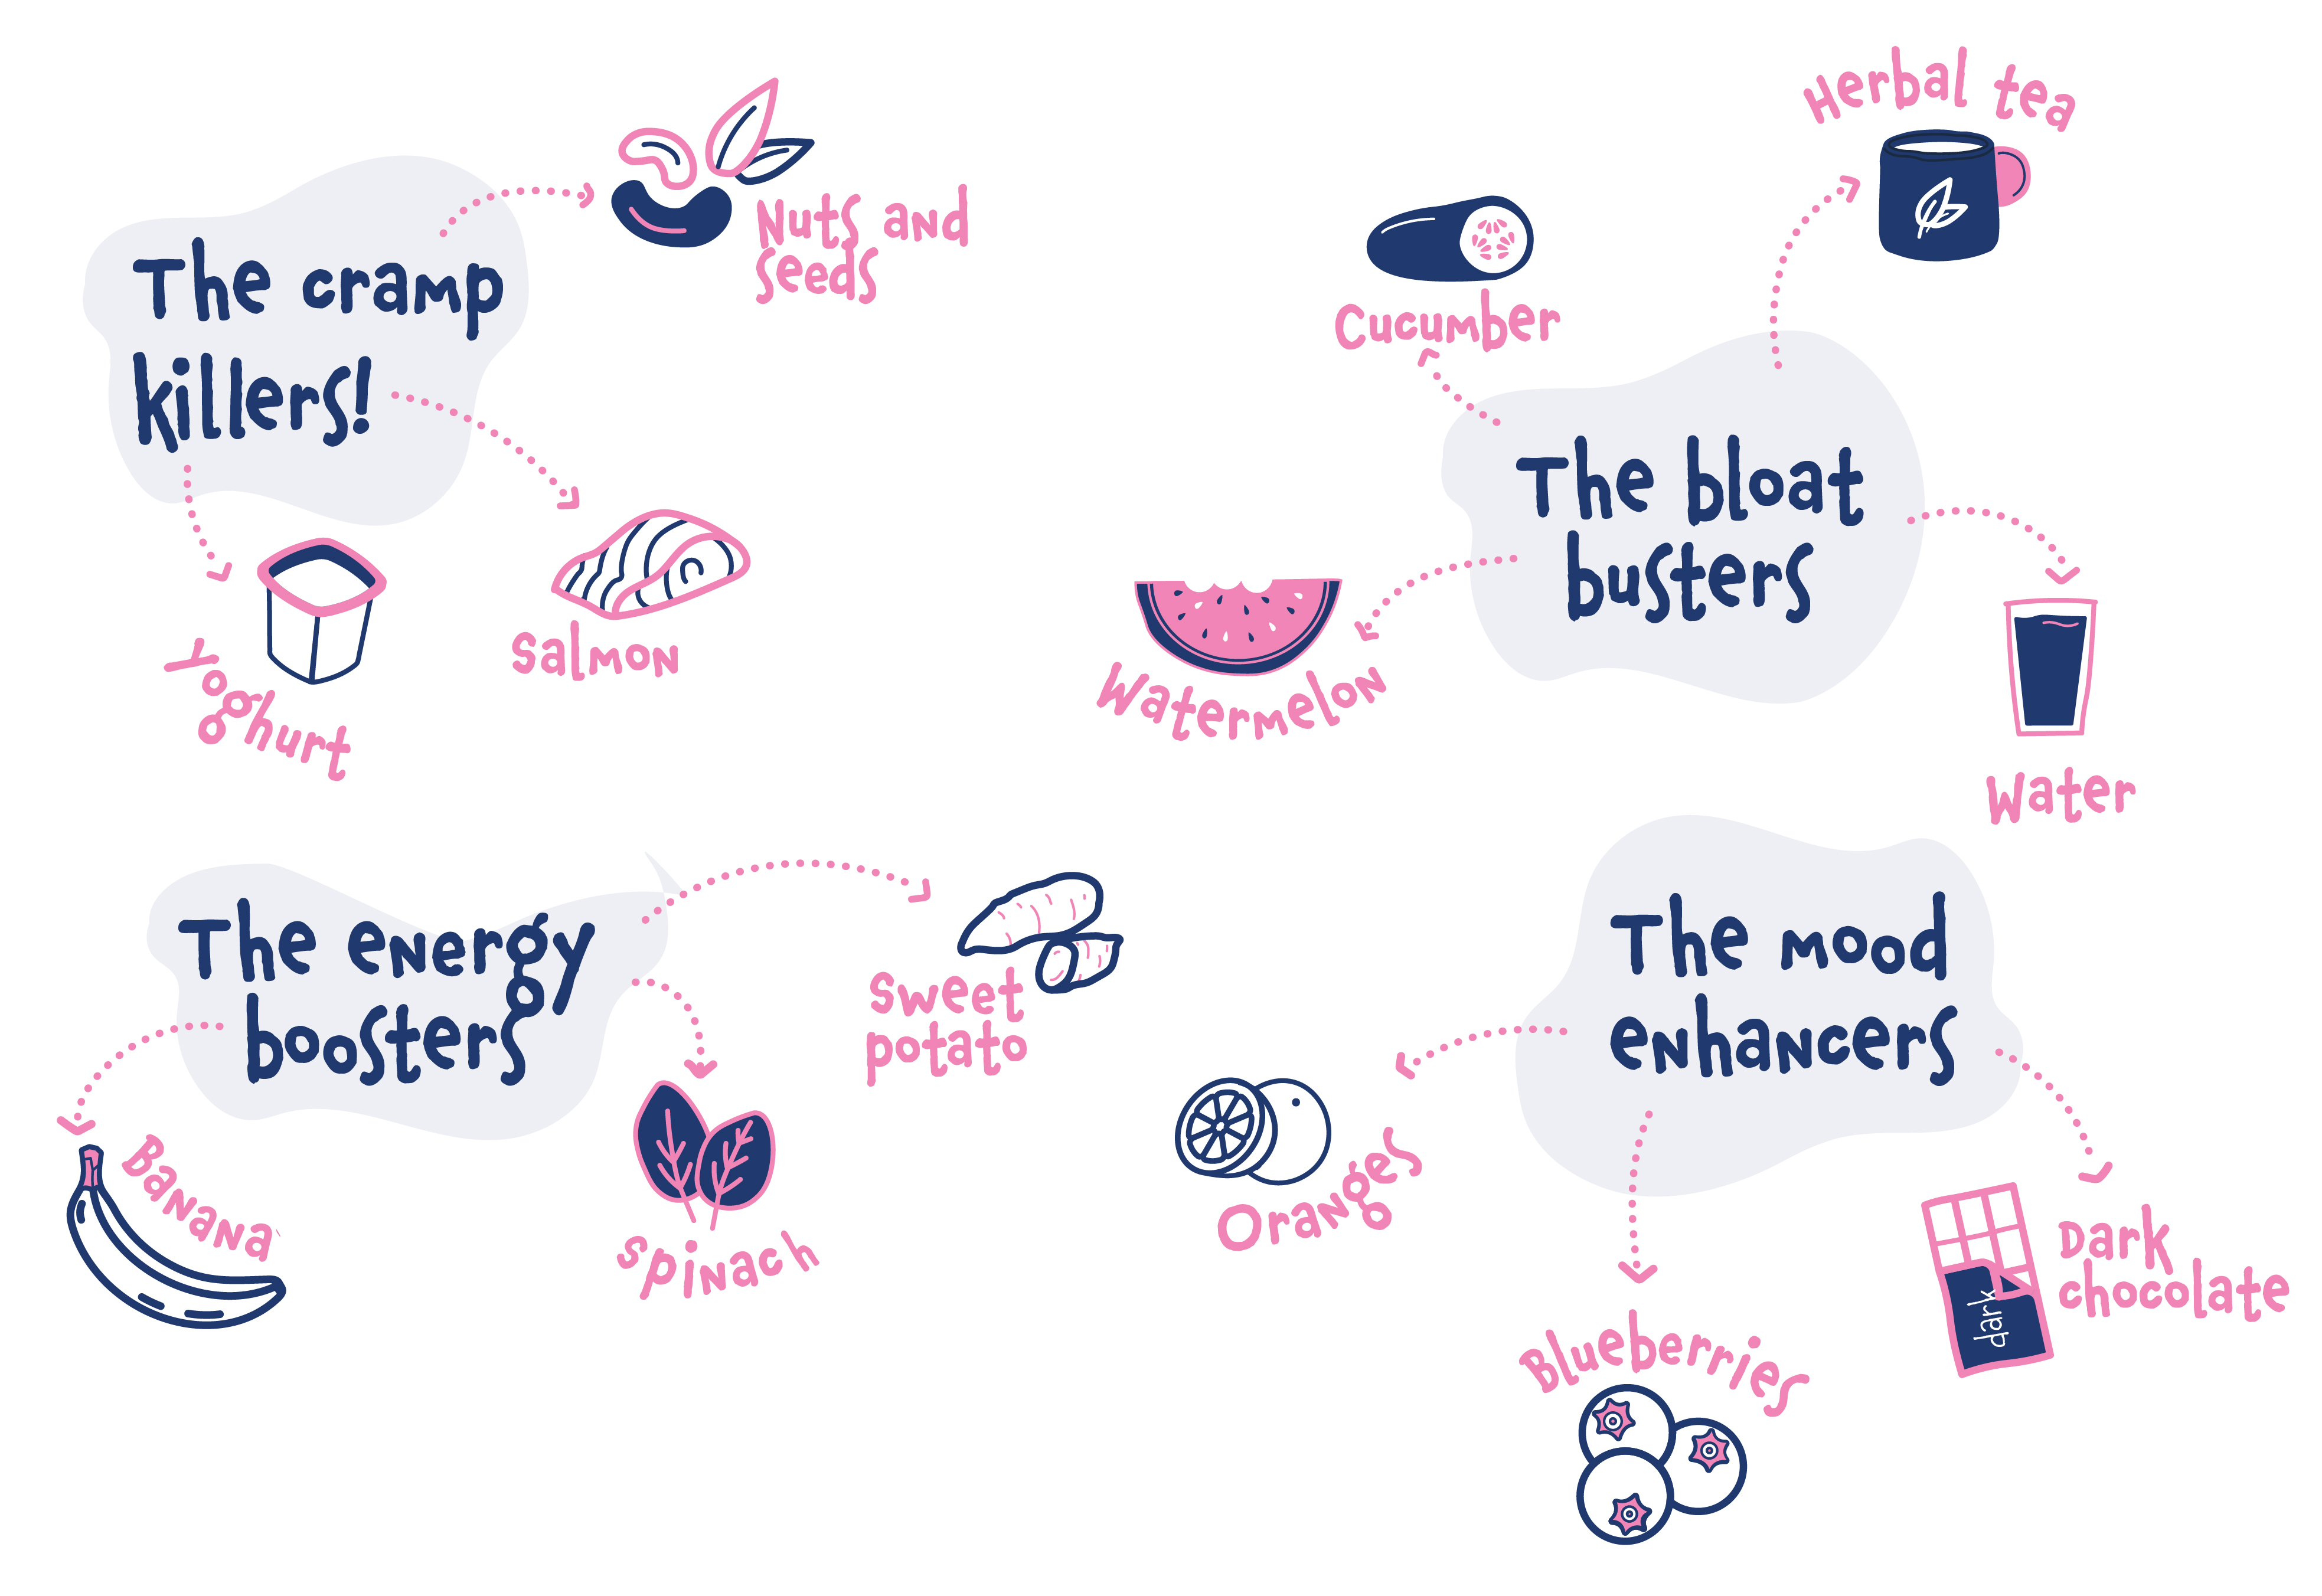 The cramp
killers!
Nuts and
seeds
salmon
Yoghurt
Herbal tea
Cucumber
The bloat
busters
Watermelon
Water
The energy
boosters
sweet
potato
spinach
Banana
The mood
enhancers
Oranges
Dark
chocolate
dark
Blueberries